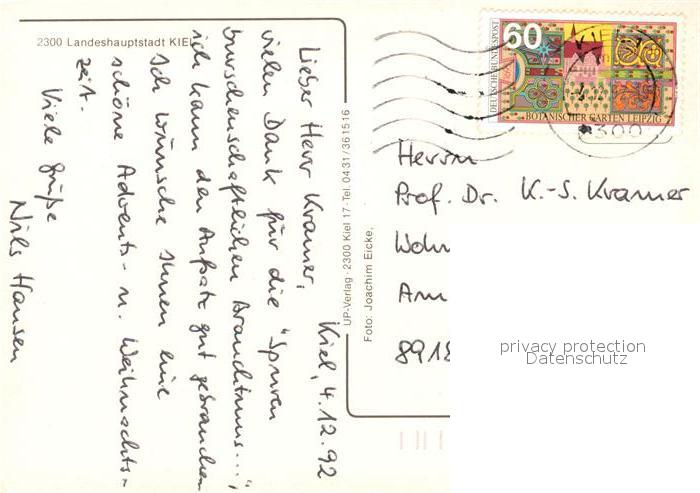 2300 Landeshauptstadt KIEL
Kiel, 4.12.92
Lieber Herr Kramer,
vielen Dank für die "Spuren
burschenschaftlichen Brauchtums...",
ich kann den Aufsatz gut gebrauchen
Ich wünsche Ihnen eine
schöne Advents- u. Weihnachts-
zeit.
Viele Grüße
Nils Hansen
UP-Verlag · 2300 Kiel 17 · Tel. 0431/361516
Foto: Joachim Eicke,
DEUTSCHE BUNDESPOST
60
BOTANISCHER GARTEN LEIPZIG
2300
Herrn
Prof. Dr. K.-S. Kramer
Am
privacy protection
Datenschutz